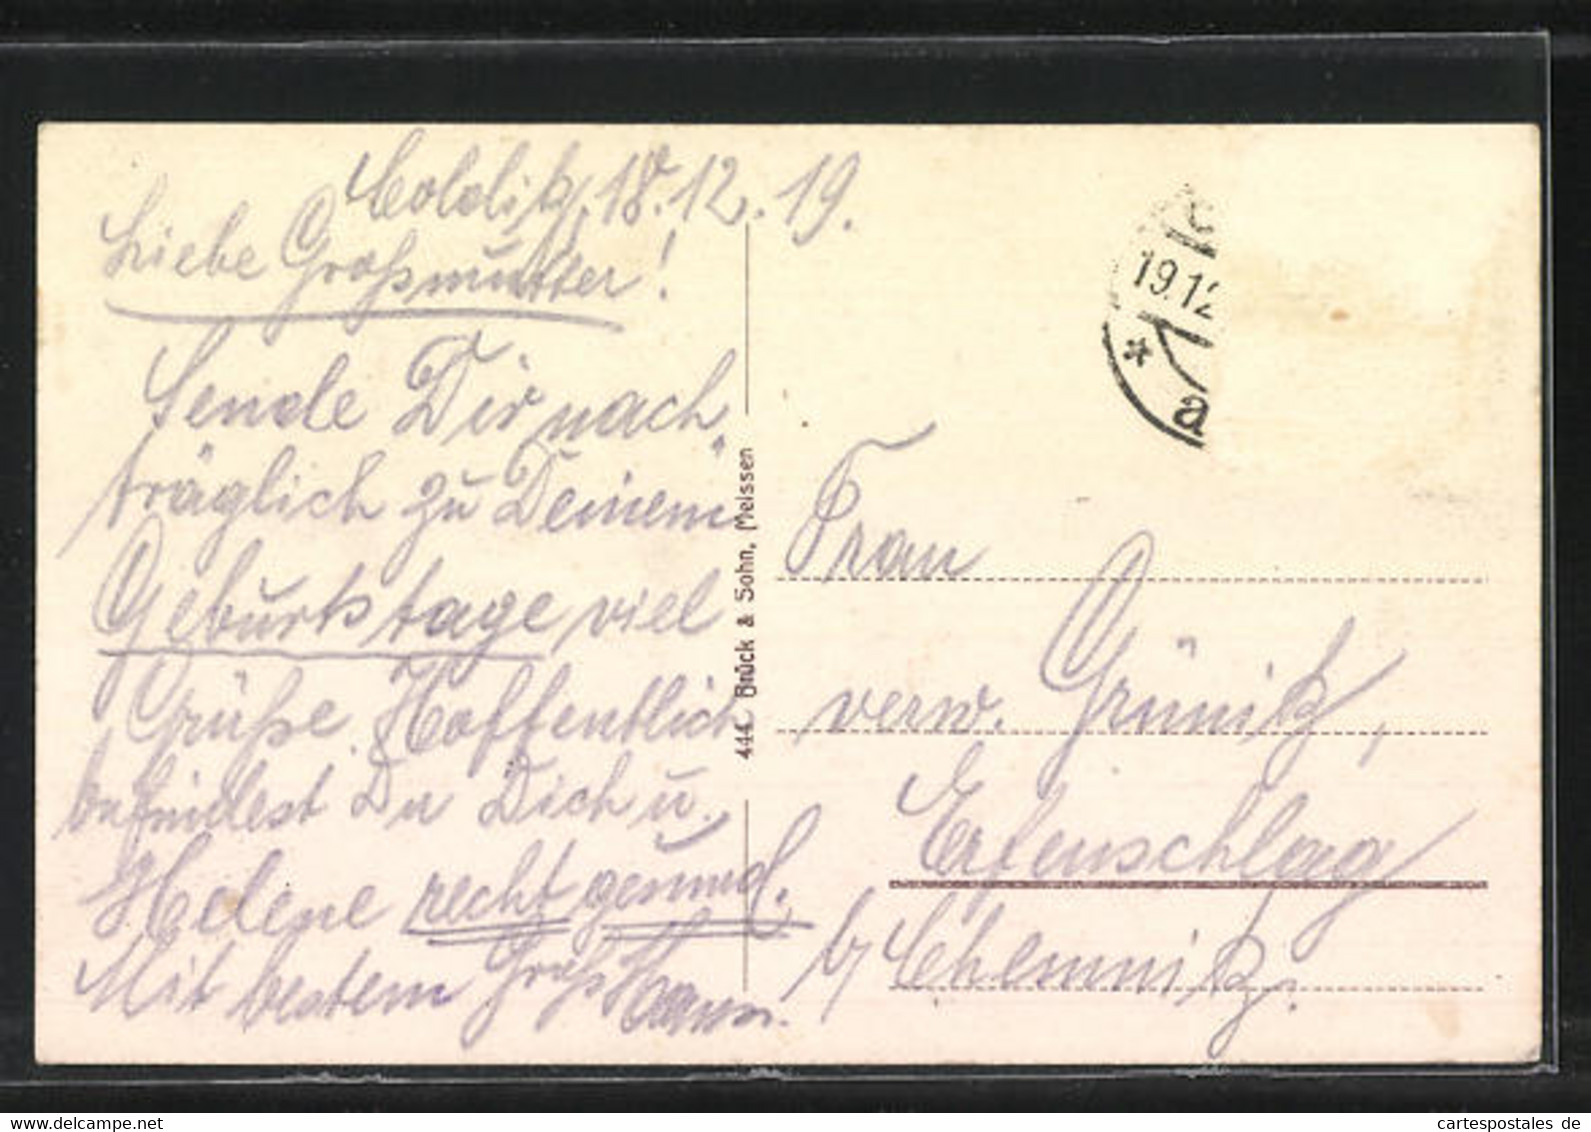 Colditz, 18.12.19.
Liebe Großmutter!
Sende Dir nach-
träglich zu Deinem
Geburtstage viel
Grüße. Hoffentlich
befindest Du Dich u.
Helene recht gesund.
Mit bestem Gruß
444 Brück & Sohn, Meissen
19.12
* a
Frau
verw. Grünitz,
Erfenschlag
b/ Chemnitz.
cartespostales de